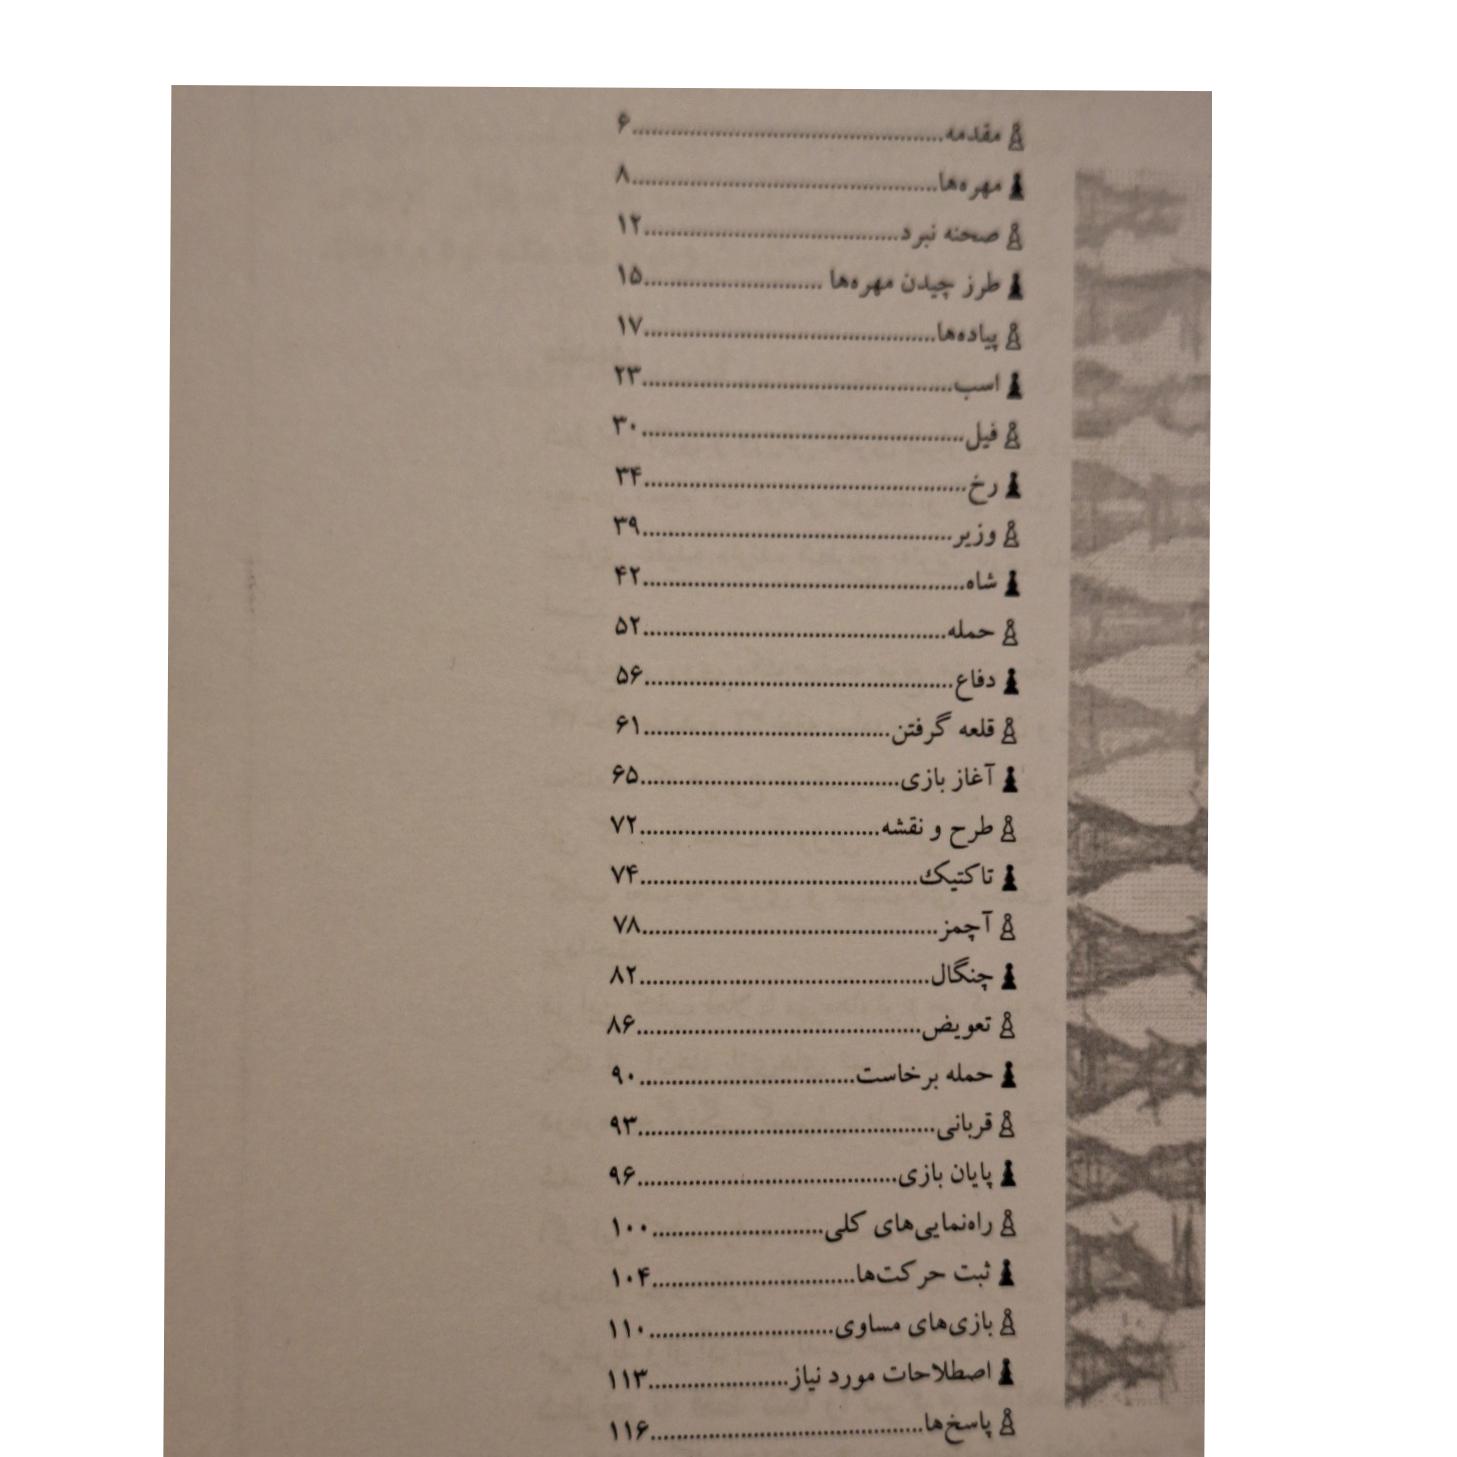 مقدمه................................................۶
مهره‌ها................................................۸
صحنه نبرد........................................۱۲
طرز چیدن مهره‌ها ............................۱۵
پیاده‌ها..............................................۱۷
اسب.................................................۲۳
فیل..................................................۳۰
رخ...................................................۳۴
وزیر.................................................۳۹
شاه..................................................۴۲
حمله................................................۵۲
دفاع.................................................۵۶
قلعه گرفتن.......................................۶۱
آغاز بازی.........................................۶۵
طرح و نقشه......................................۷۲
تاکتیک............................................۷۴
آچمز...............................................۷۸
چنگال..............................................۸۲
تعویض.............................................۸۶
حمله برخاست..................................۹۰
قربانی...............................................۹۳
پایان بازی.........................................۹۶
راه‌نمایی‌های کلی...........................۱۰۰
ثبت حرکت‌ها................................۱۰۴
بازی‌های مساوی.............................۱۱۰
اصطلاحات مورد نیاز......................۱۱۳
پاسخ‌ها...........................................۱۱۶